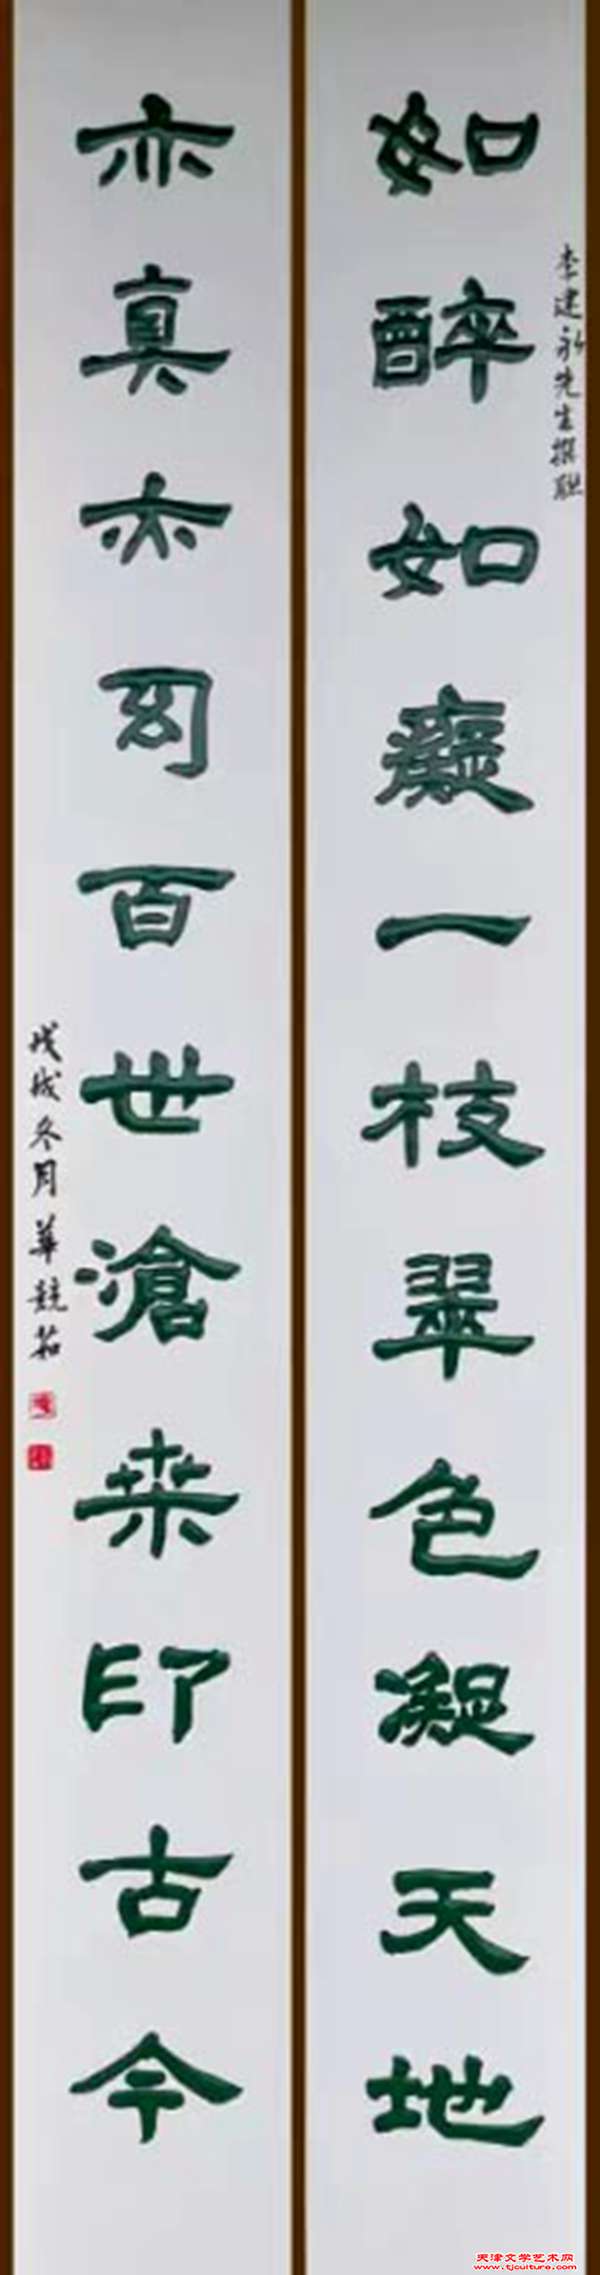 李建先生撰联
如醉如癡一枝翠色凝天地
亦真亦幻百世滄桒印古今
戊戌冬月華茹
天津文学艺术网
www.tjculture.com